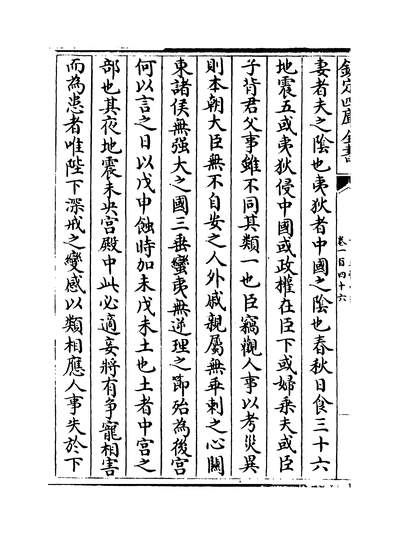 欽定四庫全書
卷一百四十六
妻者夫之陰也夷狄者中國之陰也春秋日食三十六
地震五或夷狄侵中國或政權在臣下或婦乗夫或臣
子背君父事雖不同其類一也臣竊觀人事以考災異
則本朝大臣無不自安之人外戚親屬無乖剌之心關
東諸侯無強大之國三垂蠻夷無逆理之節殆為後宮
何以言之日以戊申蝕時加未戊未土也土者中宮之
部也其夜地震未央宮殿中此必適妾將有爭寵相害
而為患者唯陛下深戒之變感以類相應人事失於下